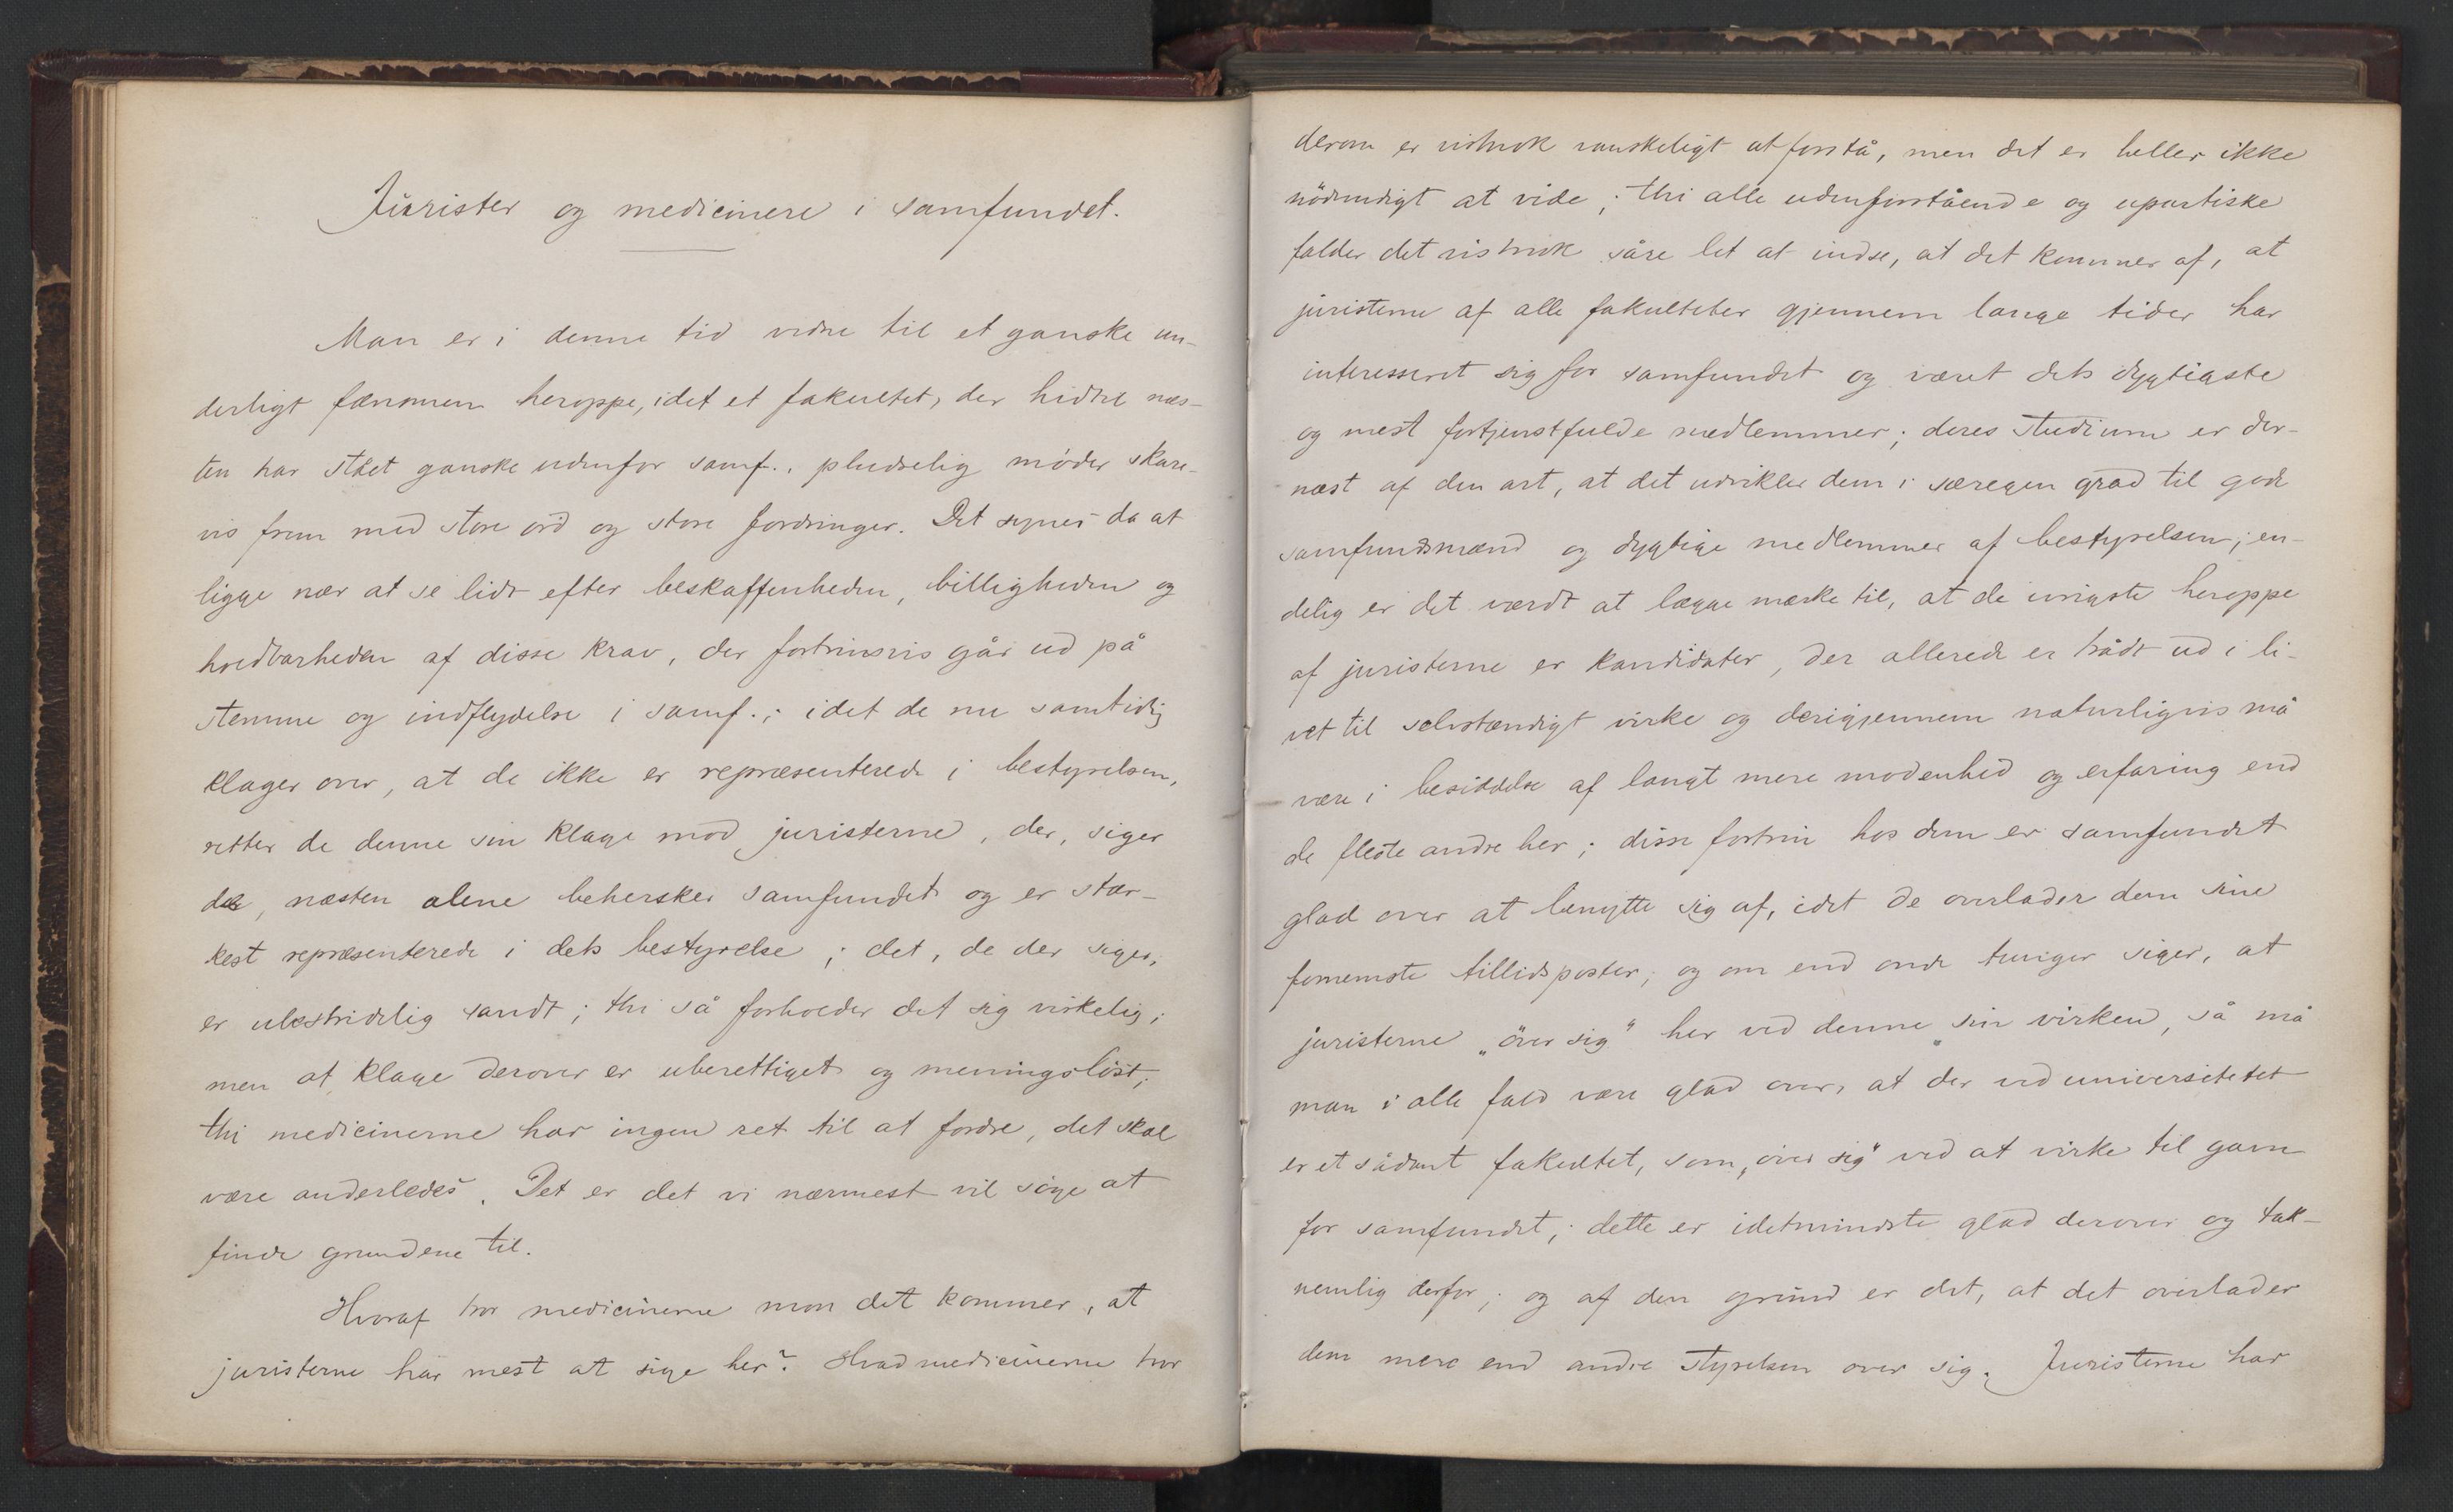 Jurister og medicinere i samfundet.
Man er i denne tid vidne til et ganske un-
derligt fænomen heroppe, idet et fakultet, der hidtil næs-
ten har stået ganske udenfor samf., pludselig møder skare-
vis frem med store ord og store fordringer. Det synes da at
ligge nær at se lidt efter beskaffenheden, billigheden og
holdbarheden af disse krav, der fortrinsvis går ud på
stemme og indflydelse i samf.; idet de nu samtidig
klager over, at de ikke er repræsenterede i bestyrelsen,
retter de denne sin klage mod juristerne, der, siger
de, næsten alene behersker samfundet og er stær-
kest repræsenterede i dets bestyrelse; det, de der siger,
er ubestridelig sandt; thi så forholder det sig virkelig;
men at klage derover er uberettiget og meningsløst;
thi medicinerne har ingen ret til at fordre, det skal
være anderledes. Det er det vi nærmest vil søge at
finde grundene til.
Hvoraf tror medicinerne mon det kommer, at
juristerne har mest at sige her? Hvad medicinerne tror
derom er vistnok vanskeligt at forstå, men det er heller ikke
nödvendigt at vide; thi alle udenforstående og upartiske
falder det vistnok såre let at indse, at det kommer af, at
juristerne af alle fakulteter gjennem lange tider har
interesseret sig for samfundet og været dets dygtigste
og mest fortjenstfulde medlemmer; deres studium er der-
næst af den art, at det udvikler dem i særegen grad til gode
samfundsmænd og dygtige medlemmer af bestyrelsen; en-
delig er det værdt at lægge mærke til, at de ivrigste heroppe
af juristerne er kandidater, der allerede er trådt ud i li-
vet til selvstændigt virke og derigjennem naturligvis må
være i besiddelse af langt mere modenhed og erfaring end
de fleste andre her; disse fortrin hos dem er samfundet
glad over at benytte sig af, idet de overlader dem sine
fornemste tillidsposter; og om end onde tunger siger, at
juristerne „över sig“ her ved denne sin virken, så må
man i alle fald være glad over, at der ved universitetet
er et sådant fakultet, som „över sig“ ved at virke til gavn
for samfundet; dette er idetmindste glad derover og tak-
nemlig derfor; og af den grund er det, at det overlader
dem mere end andre styrelsen over sig. Juristerne har